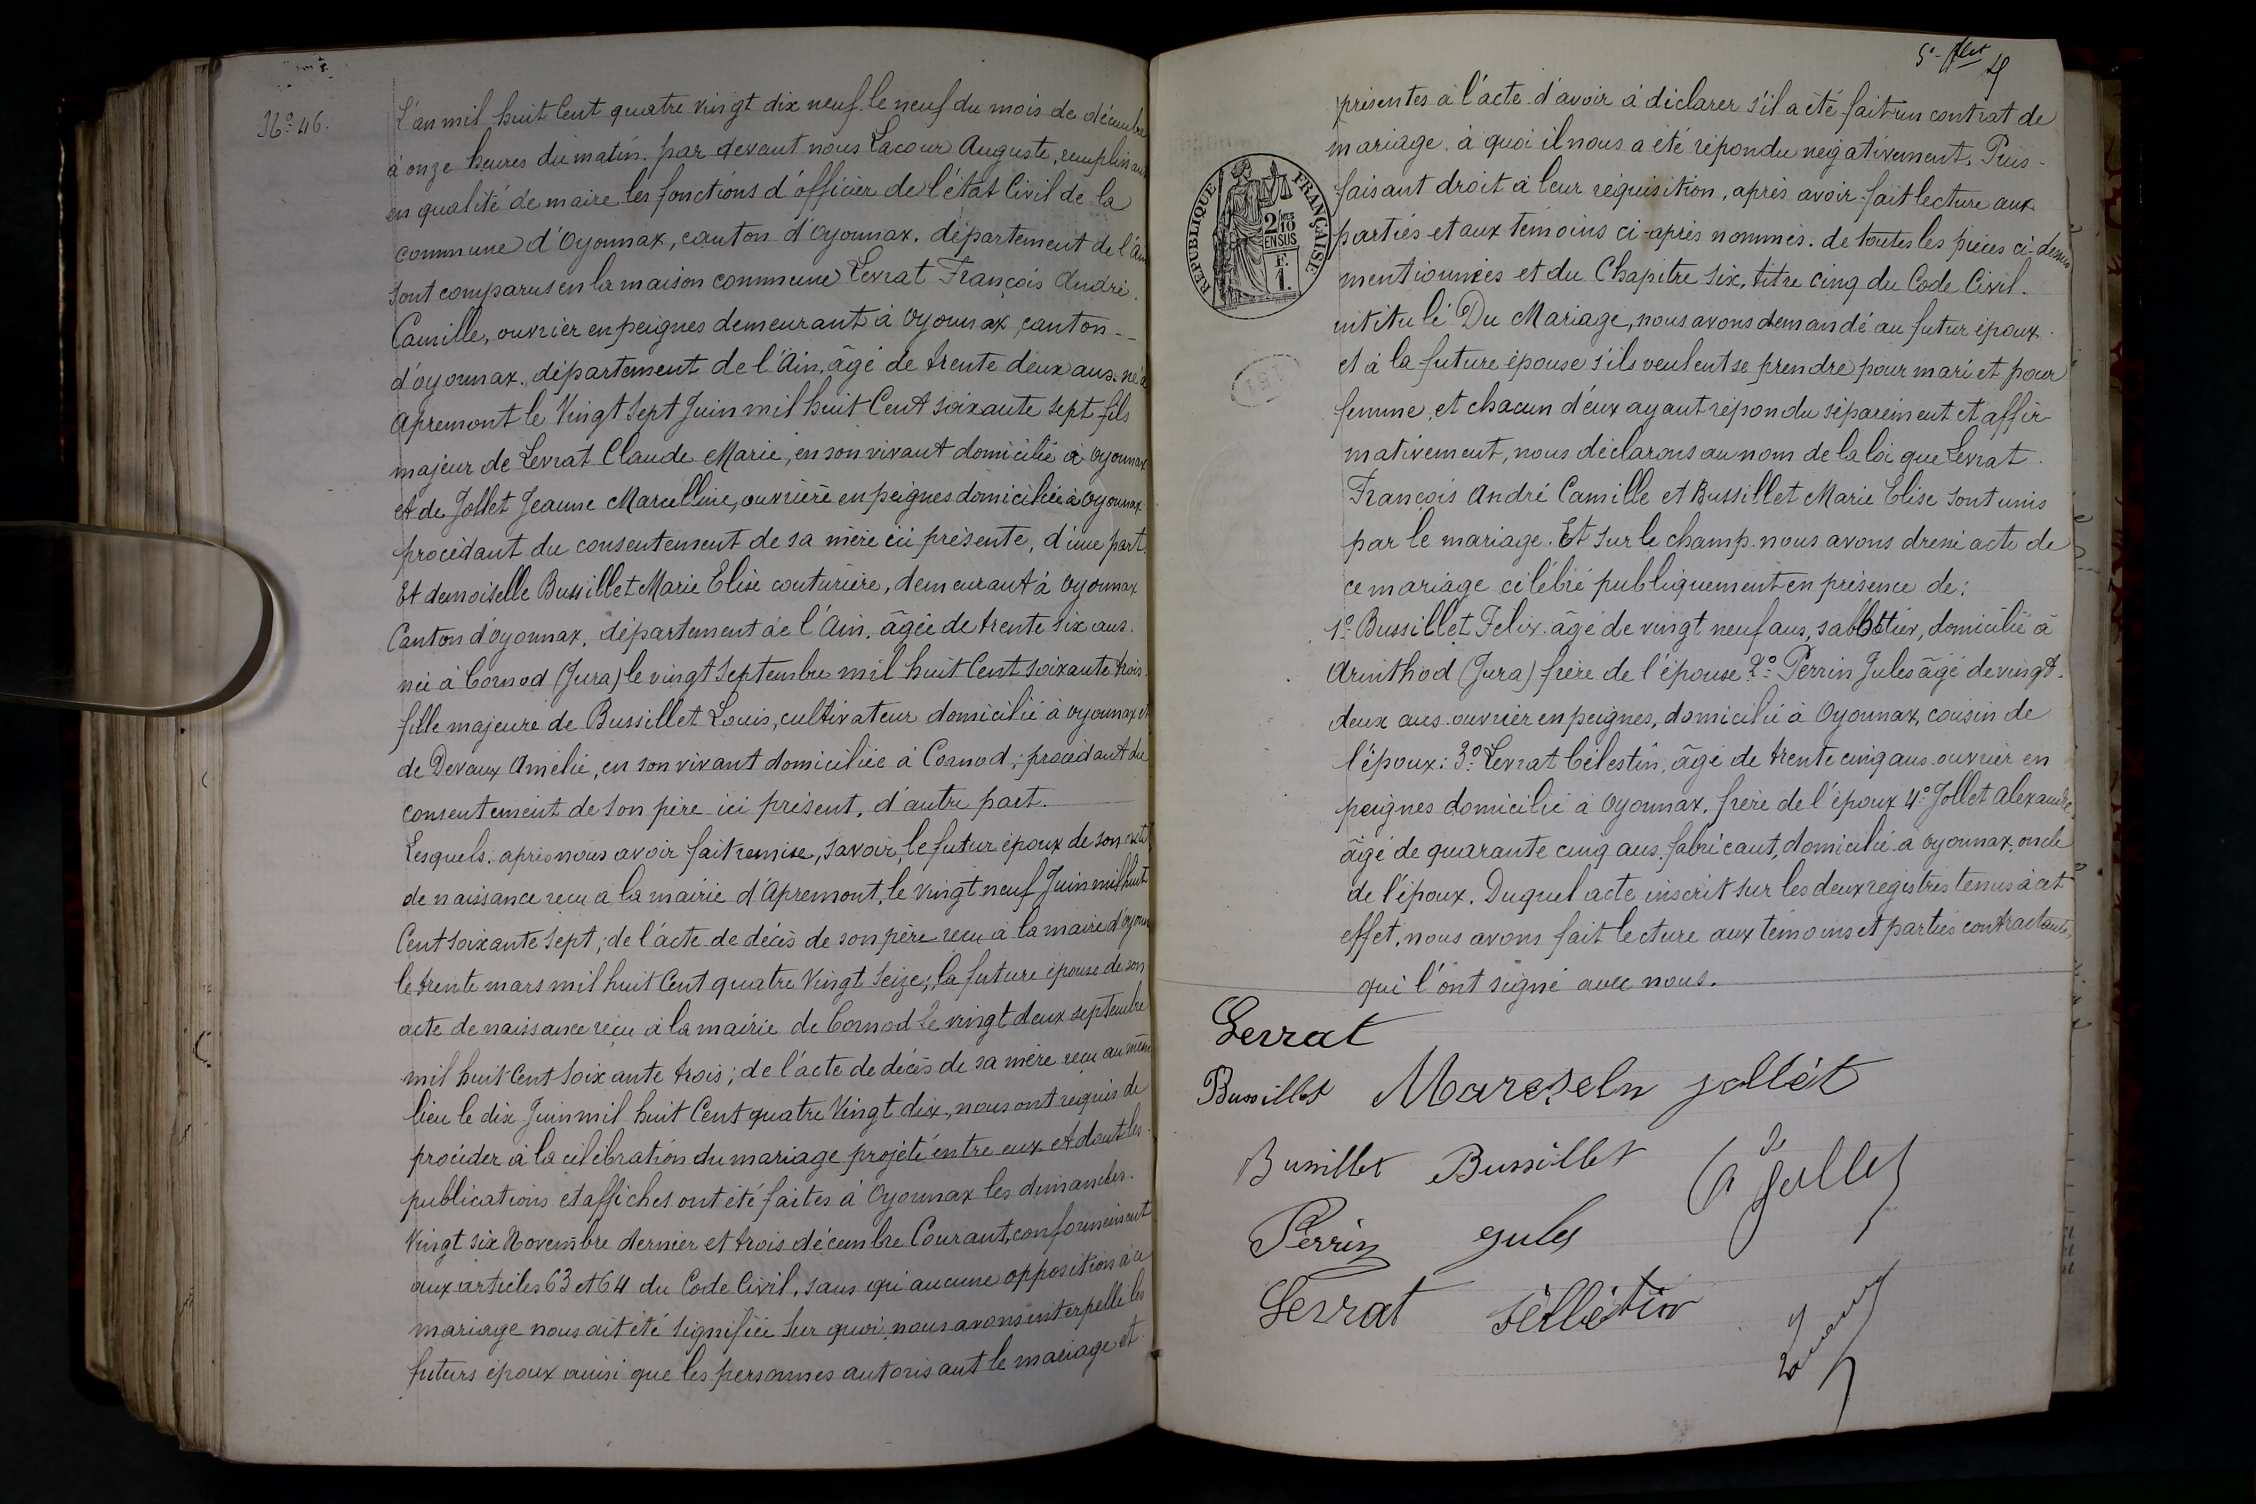 No. 46.
L'an mil huit Cent quatre vingt dix neuf le neuf du mois de décembre
à onze heures du matin. par devant nous Lacour Auguste, remplissant
en qualité de maire les fonctions d'officier de l'état Civil de la
commune d'Oyonnax, canton d'Oyonnax. département de l'Ain
sont comparus en la maison commune Levrat François André.
Camille, ouvrier en peignes demeurant à Oyonnax, canton-
d'oyonnax., département de l'Ain, âgé de trente deux ans. né à
Apremont le Vingt Sept Juin mil huit Cent soixante sept fils
majeur de Levrat Claude Marie, en son vivant domicilié à Oyonnax
et de Jollet Jeanne Marcelline, ouvrière en peignes domiciliée à Oyonnax
procédant du consentement de sa mère ici présente, d'une part.
Et demoiselle Bussillet Marie Elise couturière, demeurant à Oyonnax
Canton d'oyonnax, département de l'Ain. âgée de trente six ans.
née à Cornod (Jura) le vingt Septembre mil huit Cent soixante trois
fille majeure de Bussillet Louis, cultivateur domicilié à oyonnax et
de Devaux Amélie, en son vivant domiciliée à Cornod; procédant du
consentement de son père ici présent, d'autre part.
Lesquels, après nous avoir fait remise, savoir, le futur époux de son acte
de naissance reçu à la mairie d'Apremont, le vingt neuf Juin mil huit
Cent soixante sept; de l'acte de décès de son père reçu à la mairie d'oyonnax
le trente mars mil huit Cent quatre Vingt Seize; la future épouse de son
acte de naissance reçu à la mairie de Cornod le vingt deux septembre
mil huit Cent soixante trois; de l'acte de décès de sa mère reçu au même
lieu le dix Juin mil huit Cent quatre Vingt dix, nous ont requis de
procéder à la célébration du mariage projeté entre eux et dont les
publications et affiches ont été faites à Oyonnax les dimanches.
Vingt six Novembre dernier et trois décembre Courant, conformément
aux articles 63 et 64 du Code Civil, sans qu'aucune opposition à ce
mariage nous ait été signifiée Sur quoi nous avons interpellé les
futurs époux ainsi que les personnes autorisant le mariage et
présentes à l'acte d'avoir à déclarer s'il a été fait un contrat de
mariage. à quoi il nous a été répondu négativement. Puis-
faisant droit à leur réquisition, après avoir fait lecture aux
RÉPUBLIQUE FRANÇAISE
2/10 EN SUS
F. 1.
parties et aux témoins ci-après nommés. de toutes les pièces ci-dessus
mentionnées et du Chapitre six, titre cinq du Code Civil.
intitulé Du Mariage, nous avons demandé au futur époux.
et à la future épouse s'ils veulent se prendre pour mari et pour
femme, et chacun d'eux ayant répondu séparément et affir
mativement, nous déclarons au nom de la loi que Levrat.
François André Camille et Bussillet Marie Elise sont unis
par le mariage. Et sur le champ nous avons dressé acte de
ce mariage célébré publiquement en présence de:
1º Bussillet Felix. âgé de vingt neuf ans, sabbotier, domicilié à
Arinthod (Jura) frère de l'épouse 2º Perrin Jules âgé de vingt.
deux ans ouvrier en peignes, domicilié à Oyonnax, cousin de
l'époux: 3º Levrat Célestin, âgé de trente cinq ans ouvrier en
peignes domicilié à Oyonnax, frère de l'époux 4º Jollet Alexandre
âgé de quarante cinq ans. fabricant, domicilié à Oyonnax, oncle
de l'époux. Duquel acte inscrit sur les deux registres tenus à cet
effet, nous avons fait lecture aux témoins et parties contractantes,
qui l'ont signé avec nous.
Levrat
Bussillet Marcseln jollét
Bussillet Bussillet A Jollet
Perrin Jules
Levrat séllèstin